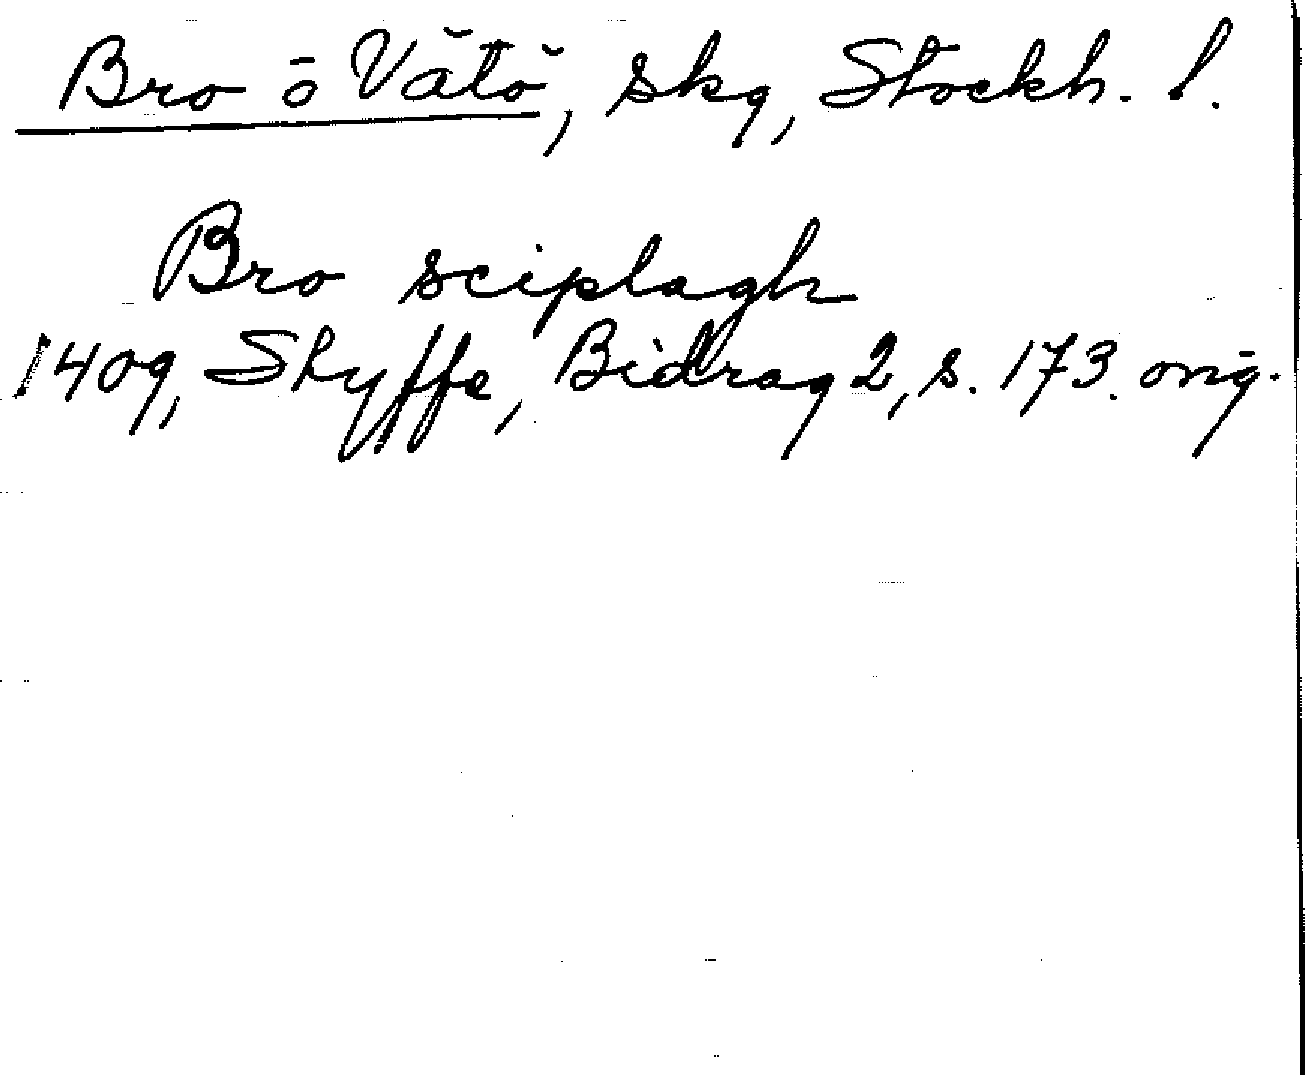 Bro ö Vätö, skg, Stockh. l.
Bro sciplagh
1409, Styffe, Bidrag 2, s. 173. orig.